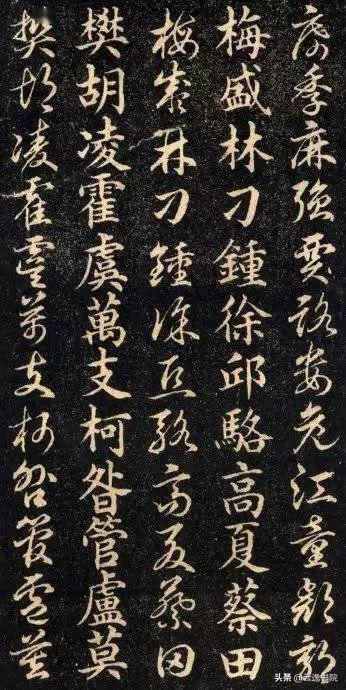 席季麻強賈路婁危江童顏郭
梅盛林刁鍾徐邱駱高夏蔡田
梅盛林刁鍾徐邱駱高夏蔡田
樊胡凌霍虞萬支柯昝管盧莫
樊胡凌霍虞萬支柯昝管盧莫
头条 @逸书院